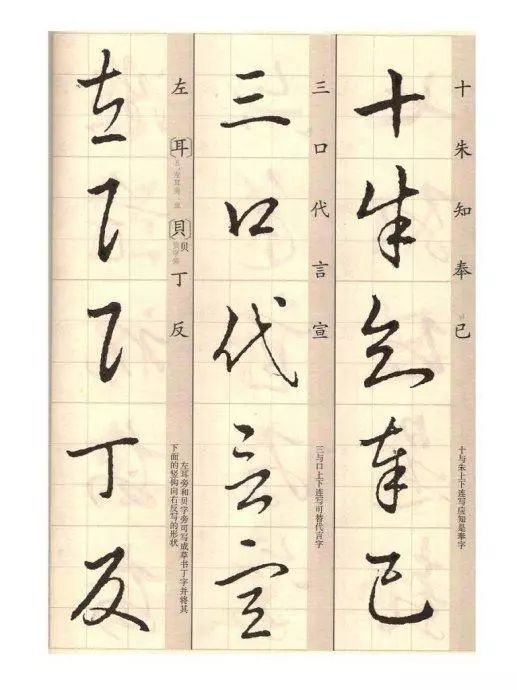 十朱知奉已
十与朱上下连写应知是奉字
十朱知奉已
三口代言宣
三与口上下连写可替代言字
三口代言宣
左〔耳〕〔貝〕贝丁反
左耳旁和贝字旁可写成草书丁字并将其
下面的竖钩向右反写的形状
左耳貝丁反